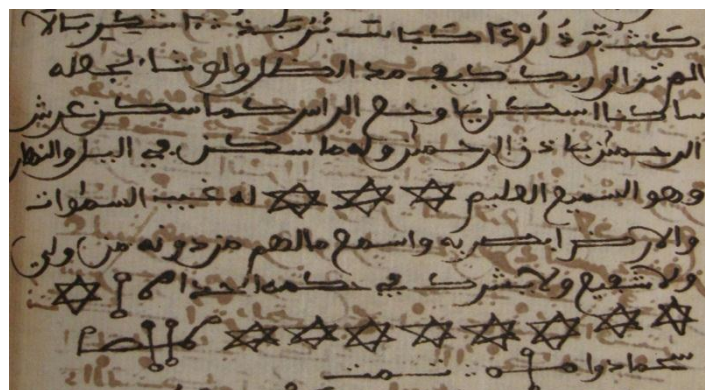 الم تر الى ربك كيف مد الظل ولو شاء لجعله
ساكنا اسكن يا وجع الراس كما سكن عرش
الرحمن باذن الرحمن وله ما سكن في اليل والنهار
وهو السميع العليم له غيب السموات
والارض ابصر به واسمع مالهم من دونه من ولي
ولا شفيع ولا يشرك في حكمه احدا
تمت